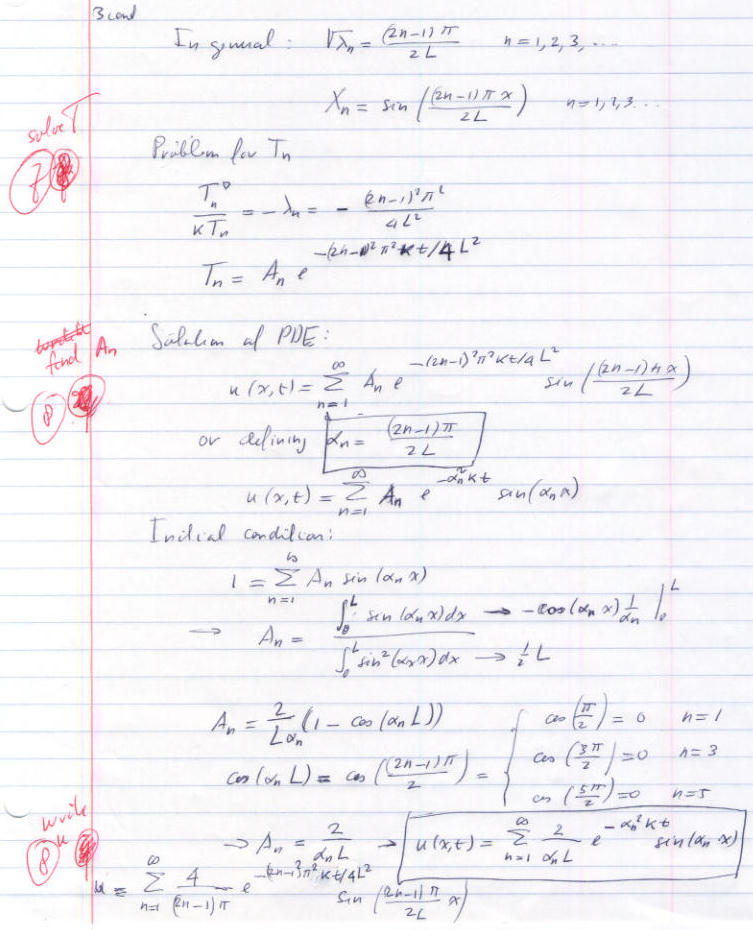 3 cont
In general: √λₙ = (2n-1)π / 2L    n = 1, 2, 3, ....
Xₙ = sin((2n-1)πx / 2L)    n = 1, 2, 3...
solve T
7
Problem for Tₙ
Tₙ° / κTₙ = -λₙ = - (2n-1)²π² / 4L²
Tₙ = Aₙ e^{-(2n-1)²π²κt/4L²}
find Aₙ
8
Solution of PDE:
u(x,t) = ∑_{n=1}^{∞} Aₙ e^{-(2n-1)²π²κt/4L²} sin((2n-1)πx / 2L)
or defining αₙ = (2n-1)π / 2L
u(x,t) = ∑_{n=1}^{∞} Aₙ e^{-αₙ²κt} sin(αₙx)
Initial condition:
1 = ∑_{n=1}^{∞} Aₙ sin(αₙx)
→ Aₙ = ∫₀ᴸ sin(αₙx)dx / ∫₀ᴸ sin²(αₙx)dx
∫₀ᴸ sin(αₙx)dx → -cos(αₙx) 1/αₙ |₀ᴸ
∫₀ᴸ sin²(αₙx)dx → ½L
Aₙ = 2/(Lαₙ) (1 - cos(αₙL))
cos(αₙL) = cos((2n-1)π / 2) = {
cos(π/2) = 0    n = 1
cos(3π/2) = 0    n = 3
cos(5π/2) = 0    n = 5
write u
8
→ Aₙ = 2/(αₙL) → u(x,t) = ∑_{n=1}^{∞} 2/(αₙL) e^{-αₙ²κt} sin(αₙx)
u = ∑_{n=1}^{∞} 4/((2n-1)π) e^{-(2n-1)²π²κt/4L²} sin((2n-1)π/2L x)